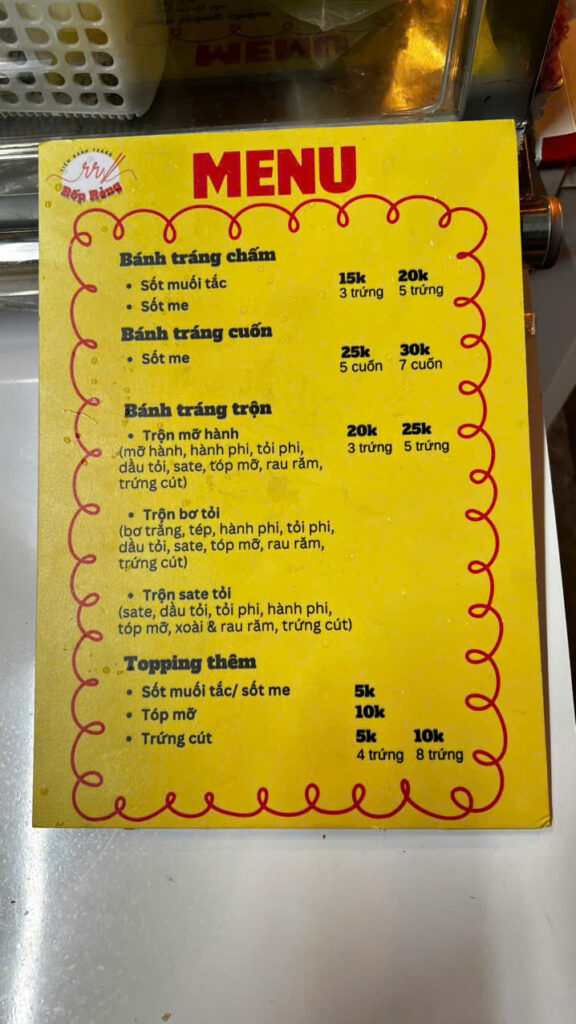 TIỆM BÁNH TRÁNG
Bếp Ràng
MENU
Bánh tráng chấm
• Sốt muối tắc
• Sốt me
15k 20k
3 trứng 5 trứng
Bánh tráng cuốn
• Sốt me
25k 30k
5 cuốn 7 cuốn
Bánh tráng trộn
• Trộn mỡ hành
20k 25k
3 trứng 5 trứng
(mỡ hành, hành phi, tỏi phi,
dầu tỏi, sate, tóp mỡ, rau răm,
trứng cút)
• Trộn bơ tỏi
(bơ trắng, tép, hành phi, tỏi phi,
dầu tỏi, sate, tóp mỡ, rau răm,
trứng cút)
• Trộn sate tỏi
(sate, dầu tỏi, tỏi phi, hành phi,
tóp mỡ, xoài & rau răm, trứng cút)
Topping thêm
• Sốt muối tắc/ sốt me 5k
• Tóp mỡ 10k
• Trứng cút 5k 10k
4 trứng 8 trứng